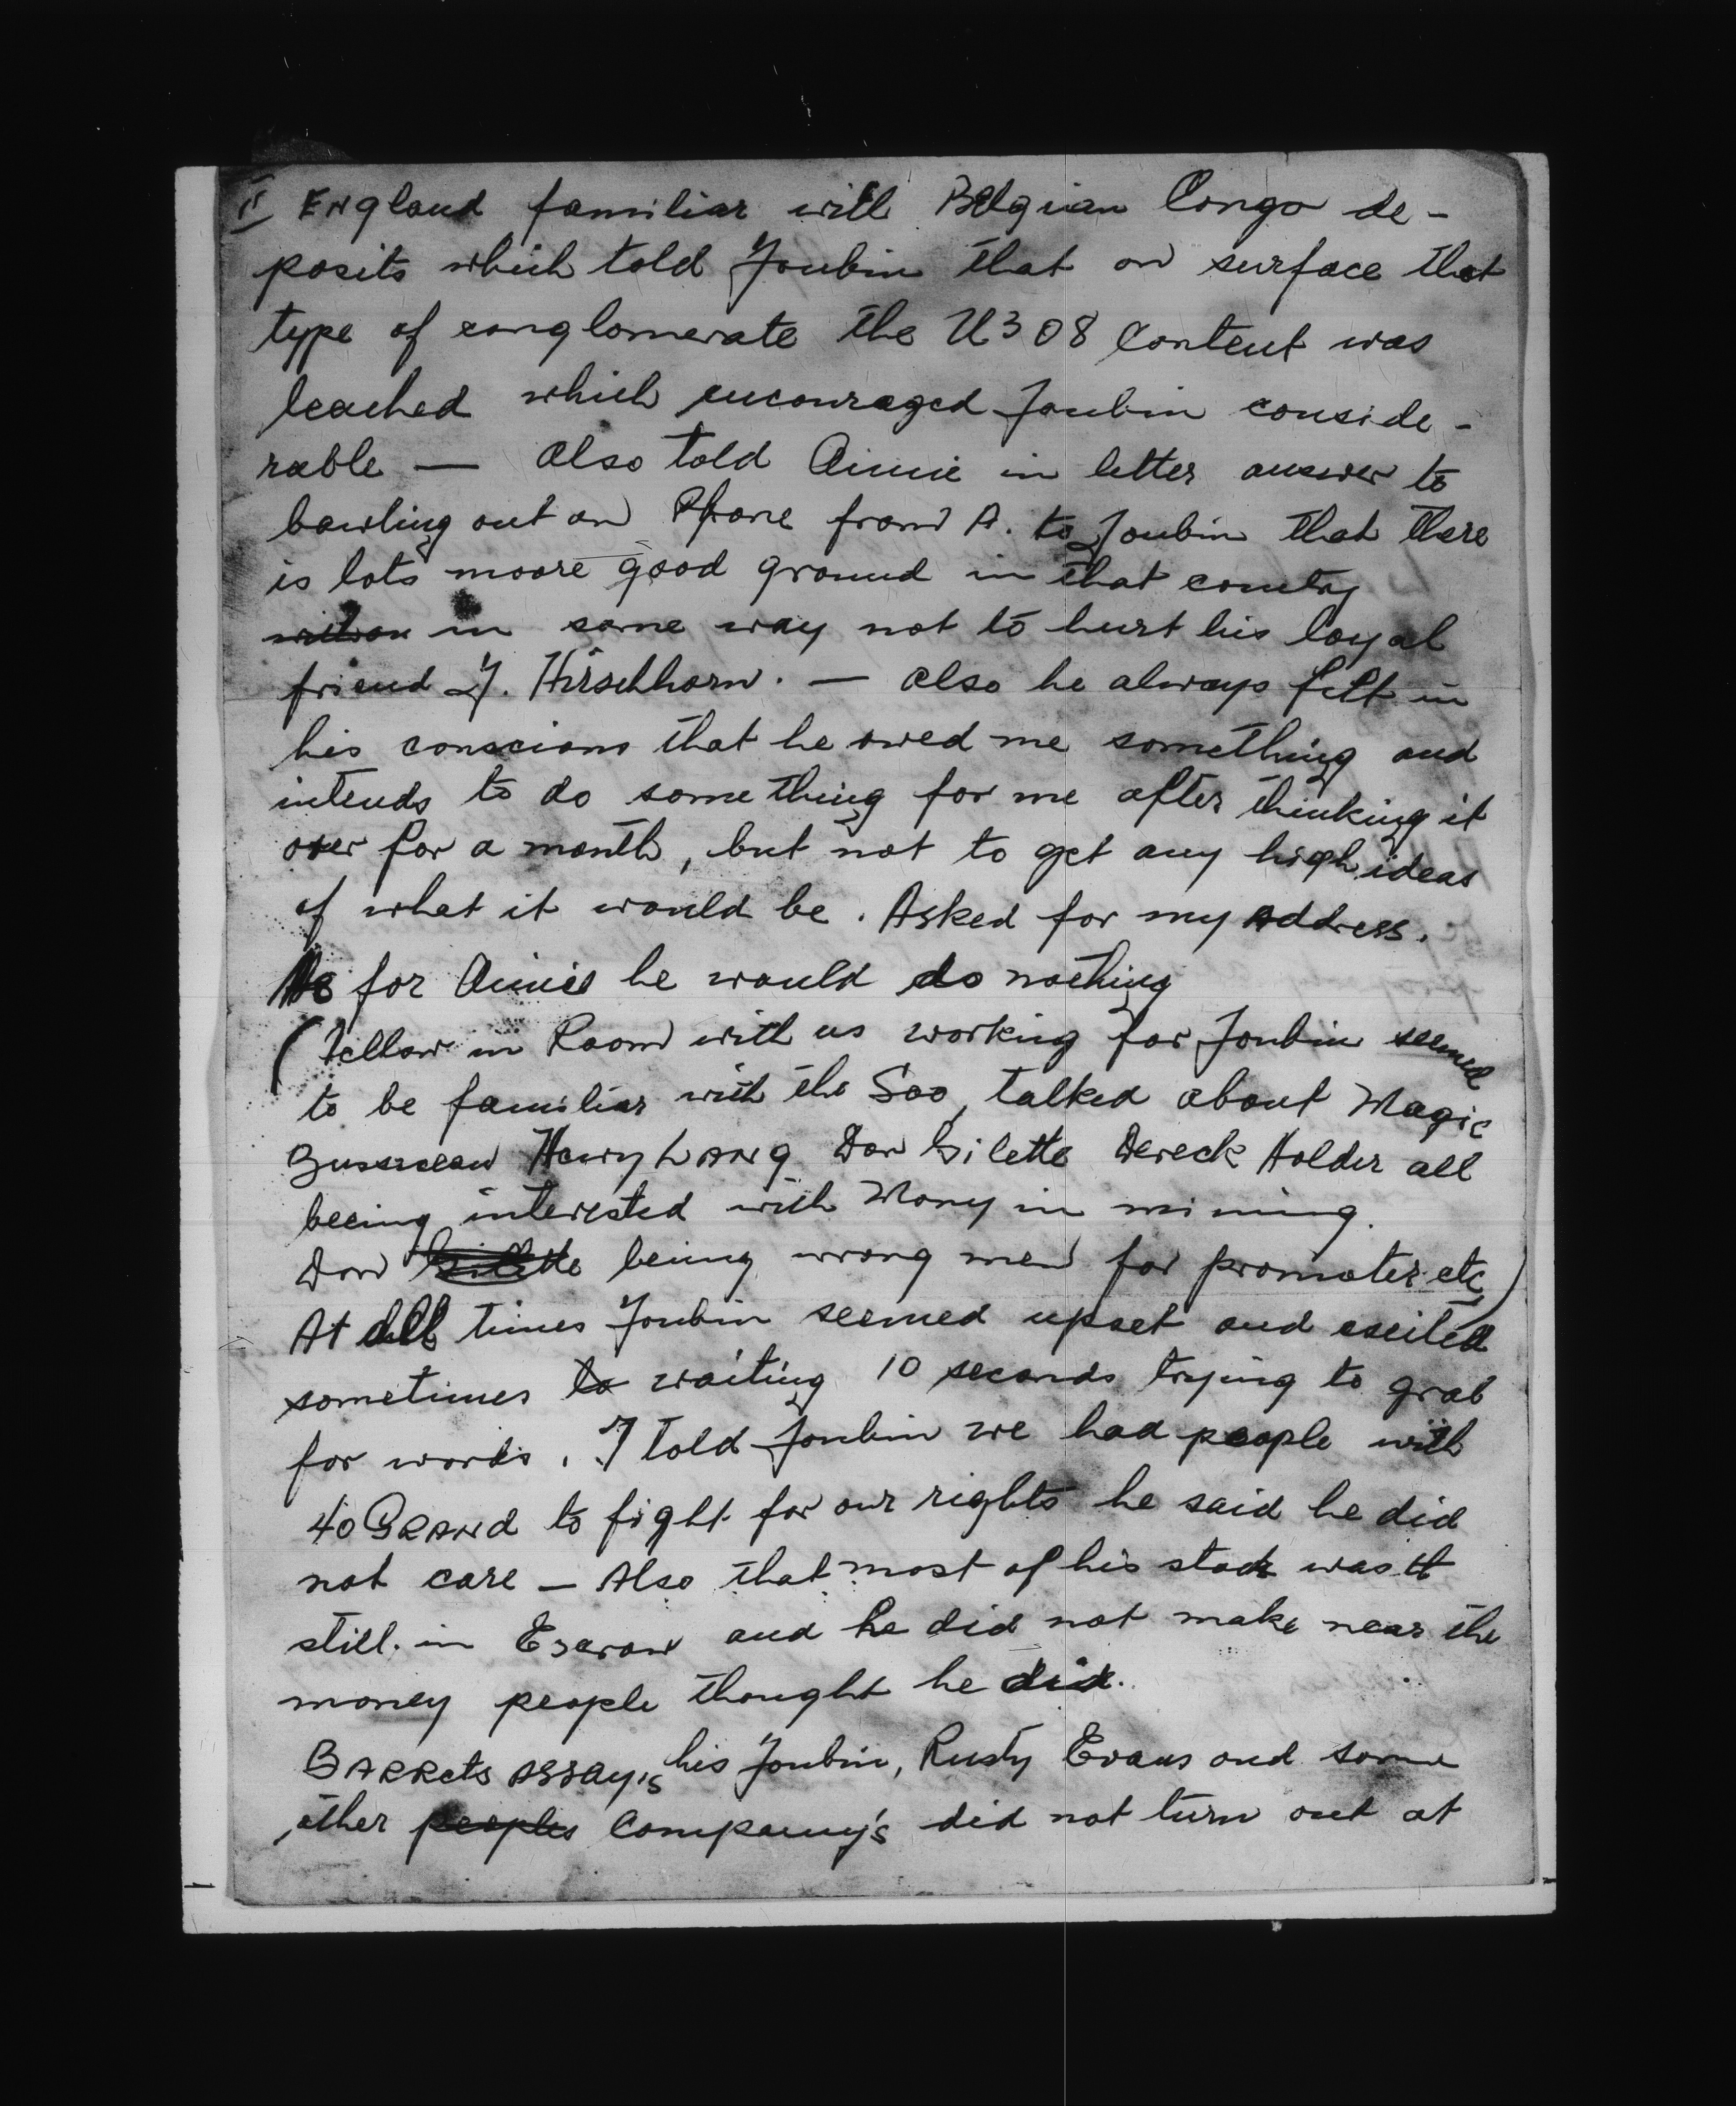 II England familiar with Belgian Congo de-
posits which told Joubin that on surface that
type of conglomerate the U308 content was
leached which encouraged Joubin conside-
rable — also told Aimie in letter answer to
bawling out on Phone from A. to Joubin that there
is lots moore good ground in that country
in some way not to hurt his loyal
friend J. Hirschhorn. — also he always felt in
his conscious that he owed me something and
intends to do something for me after thinking it
over for a month, but not to get any high ideas
of what it would be. Asked for my Address.
As for Aimie he would do nothing
(Fellow in Room with us working for Joubin seemed
to be familiar with the Soo, talked about Magic
Henry Lang Don Gilette Dereck Holder all
beeing interested with Mony in mining.
Don Gilette being wrong men for promoter etc)
At all times Joubin seemed upset and exeited
sometimes to waiting 10 seconds trying to grab
for words. I told Joubin we had people with
40 Grand to fight for our rights he said he did
not care — Also that most of his stock was
still in Escrow and he did not make near the
money people thought he did.
Barrets assay's his Joubin, Rusty Evans and some
other peoples Company's did not turn out at